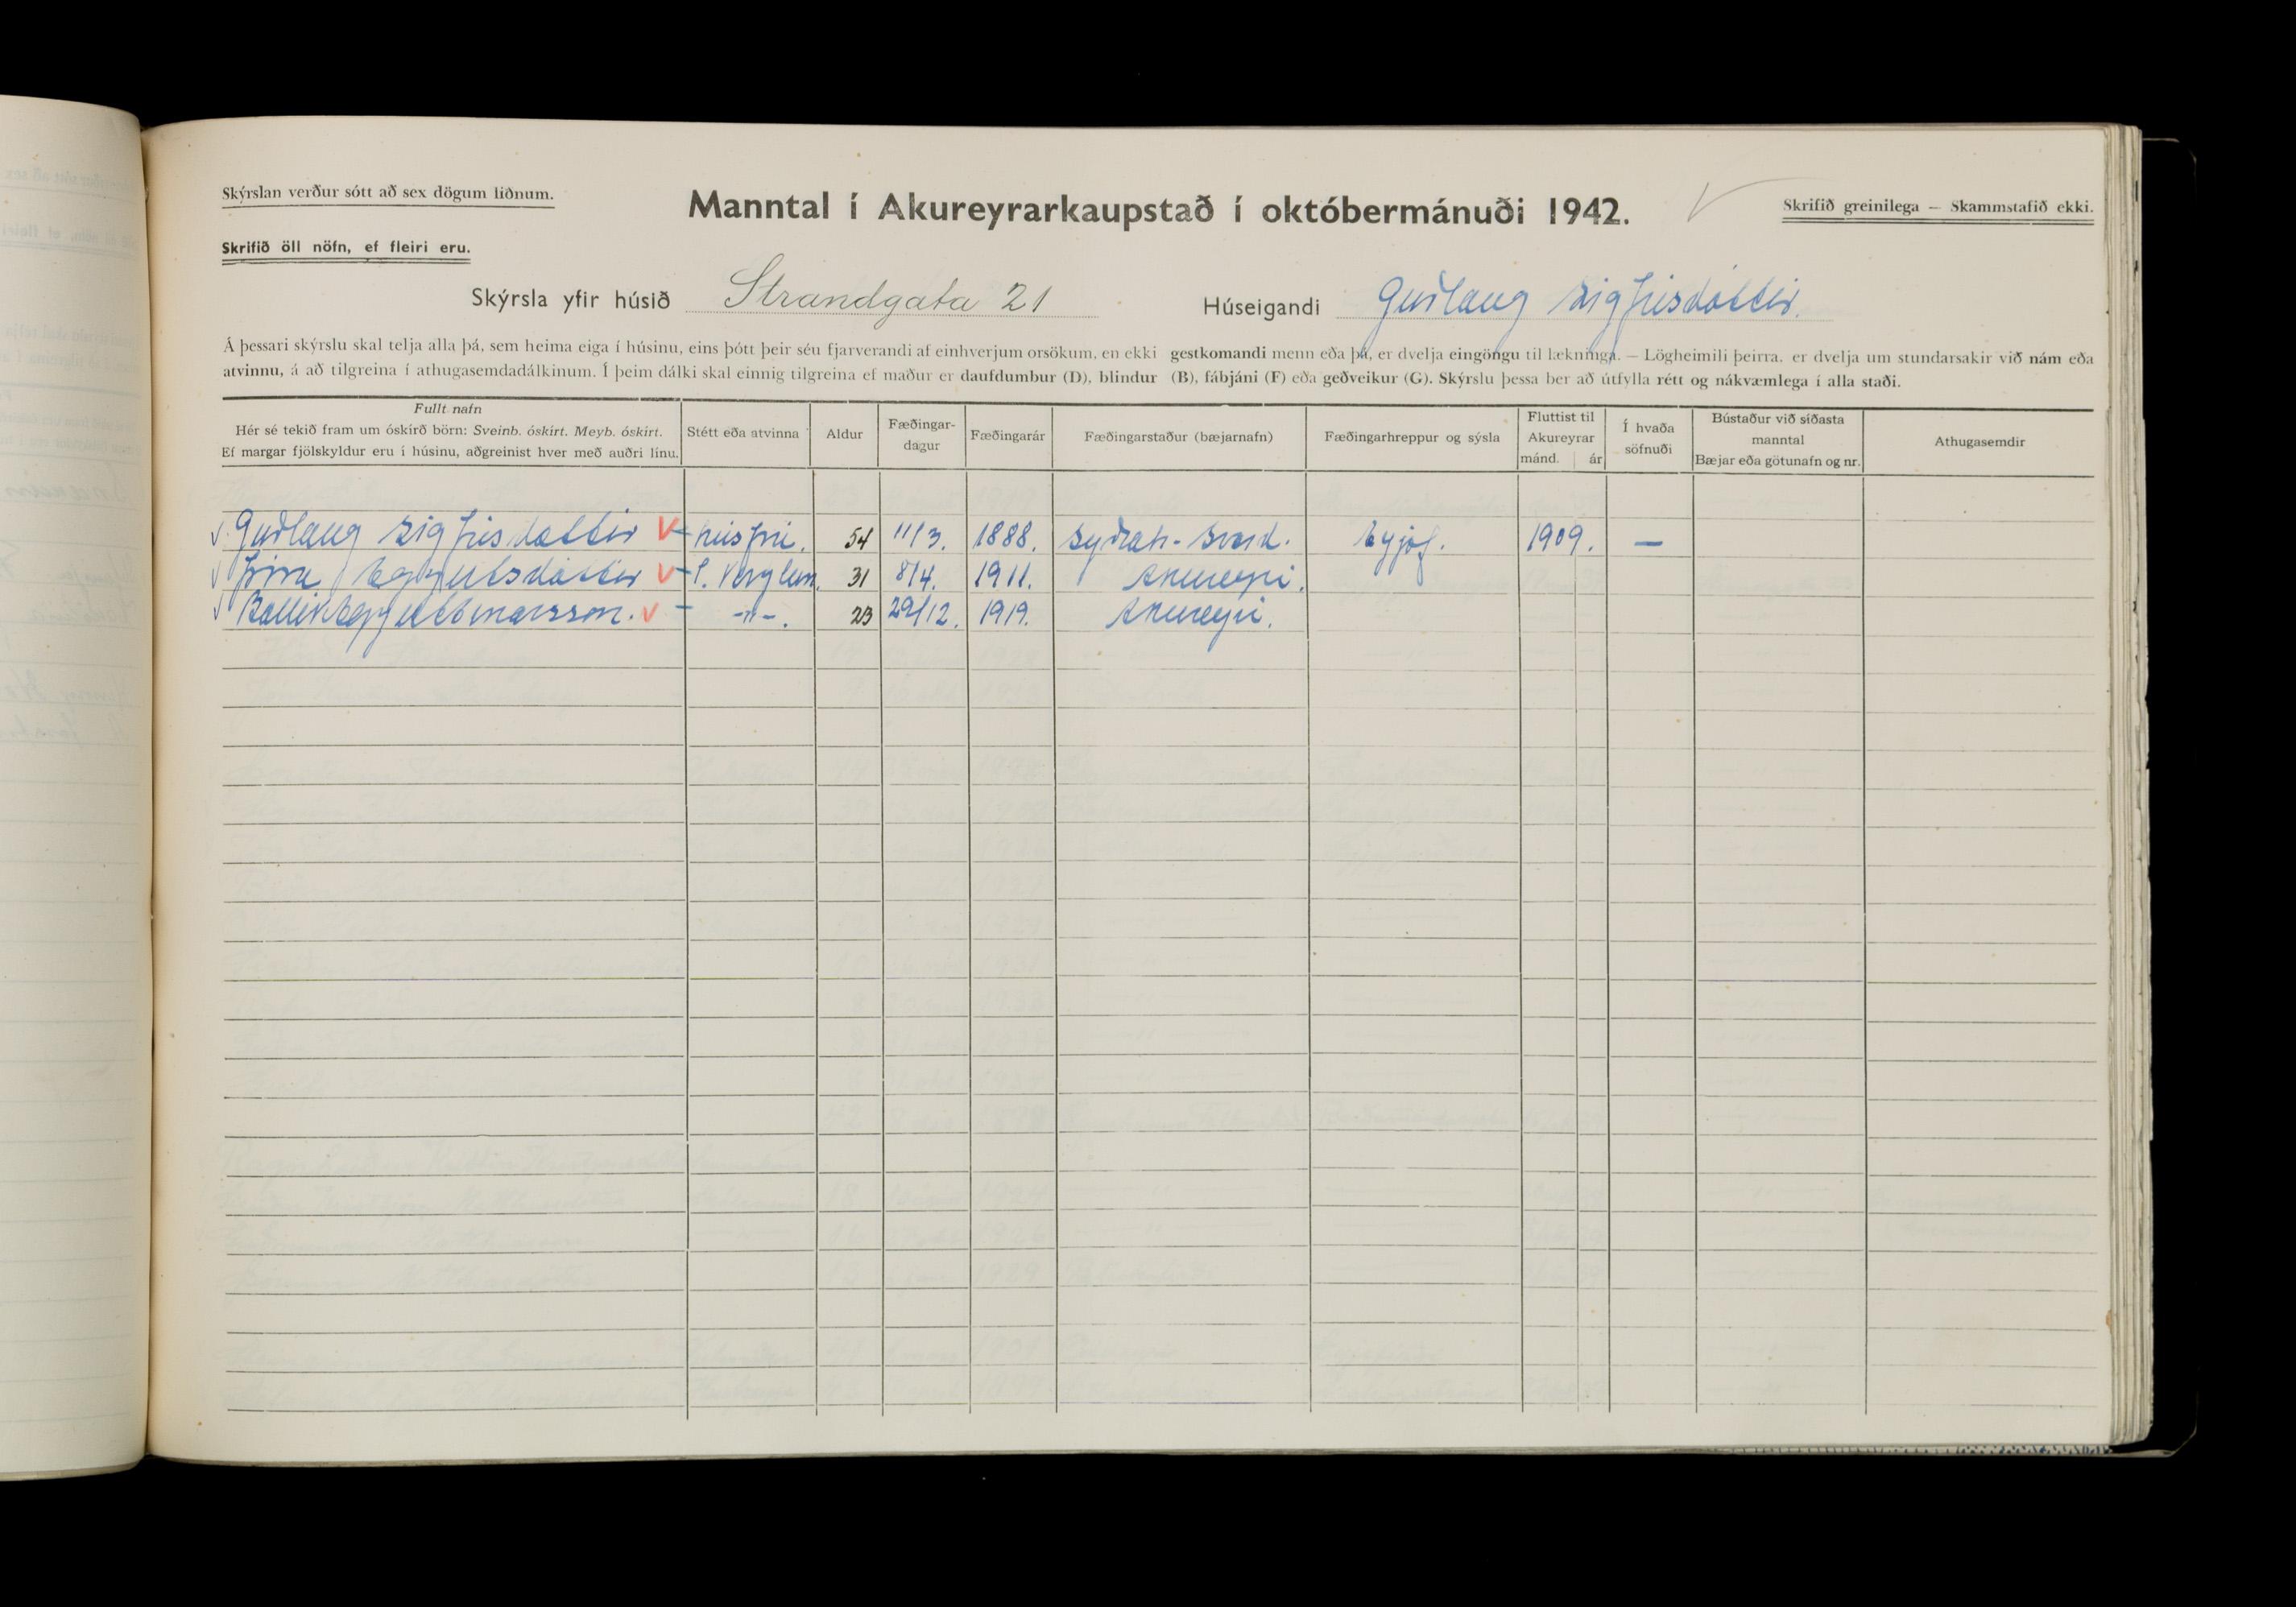 Skýrslan verður sótt að sex dögum liðnum.
Manntal í Akureyrarkaupstað í októbermánuði 1942.
Skrifið greinilega — Skammstafið ekki.
Skrifið öll nöfn, ef fleiri eru.
Skýrsla yfir húsið Strandgata 21 Húseigandi Guðlaug Sigfúsdóttir.
Á þessari skýrslu skal telja alla þá, sem heima eiga í húsinu, eins þótt þeir séu fjarverandi af einhverjum orsökum, en ekki gestkomandi menn eða þá, er dvelja eingöngu til lækninga. — Lögheimili þeirra, er dvelja um stundarsakir við nám eða
atvinnu, á að tilgreina í athugasemdadálkinum. Í þeim dálki skal einnig tilgreina ef maður er daufdumbur (D), blindur (B), fábjáni (F) eða geðveikur (G). Skýrslu þessa ber að útfylla rétt og nákvæmlega í alla staði.
Fullt nafn
Hér sé tekið fram um óskírð börn: Sveinb. óskírt. Meyb. óskírt.
Ef margar fjölskyldur eru í húsinu, aðgreinist hver með auðri línu.
Stétt eða atvinna
Aldur
Fæðingar-
dagur
Fæðingarár
Fæðingarstaður (bæjarnafn)
Fæðingarhreppur og sýsla
Fluttist til
Akureyrar
mánd. ár
Í hvaða
söfnuði
Bústaður við síðasta
manntal
Bæjar eða götunafn og nr.
Athugasemdir
Guðlaug Sigfúsdóttir húsfrú. 54 11/3. 1888. Eyjaf. 1909. —
31 8/4. 1911. Akureyri.
-"-. 23 29/12. 1919. Akureyri.